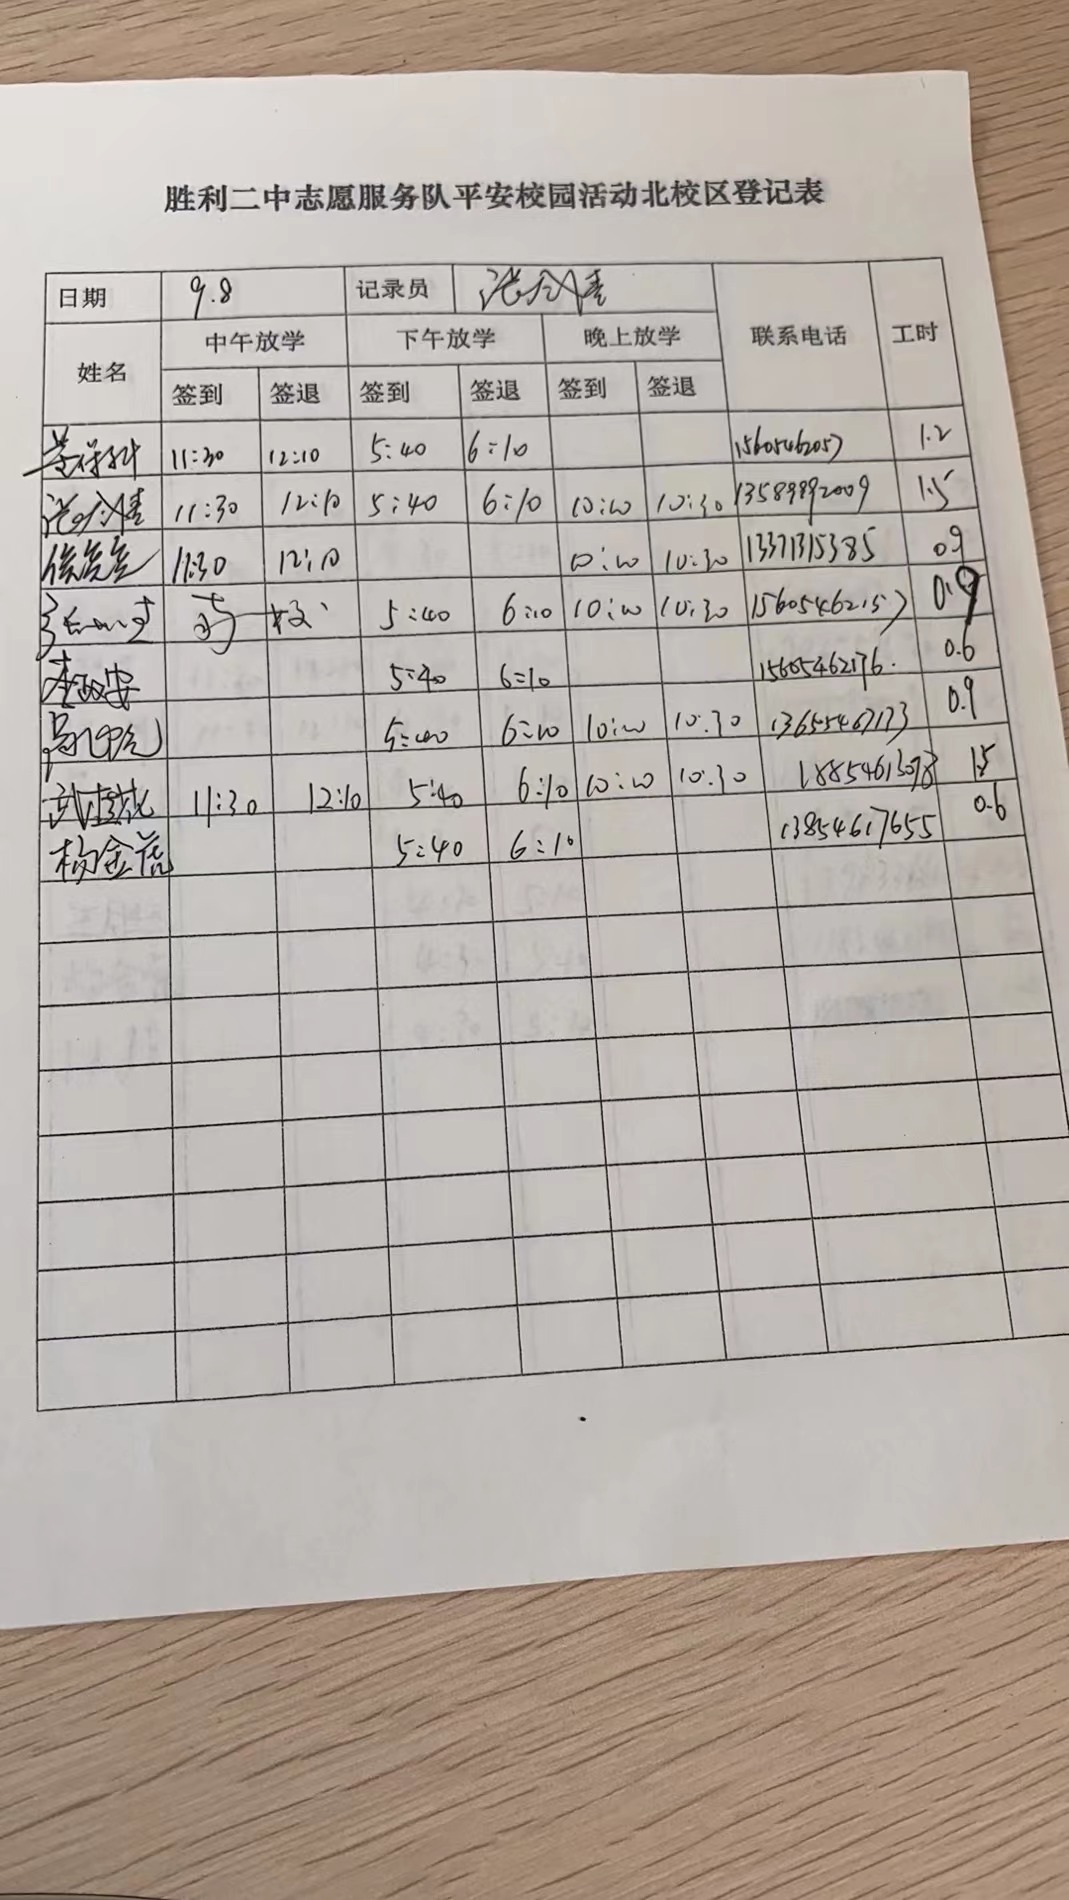 胜利二中志愿服务队平安校园活动北校区登记表
日期 9.8 记录员
姓名 中午放学 下午放学 晚上放学 联系电话 工时
签到 签退 签到 签退 签到 签退
11:30 12:10 5:40 6:10 15605462057 1.2
11:30 12:10 5:40 6:10 10:00 10:30 13589992009 1.5
11:30 12:10 10:00 10:30 13371315385 0.9
南 校 5:40 6:10 10:00 10:30 15605462157 0.9
李政安 5:40 6:10 15605462176. 0.6
5:40 6:10 10:00 10:30 13655467173 0.9
11:30 12:10 5:40 6:10 10:00 10:30 18854613098 1.5
杨金虎 5:40 6:10 13854617655 0.6